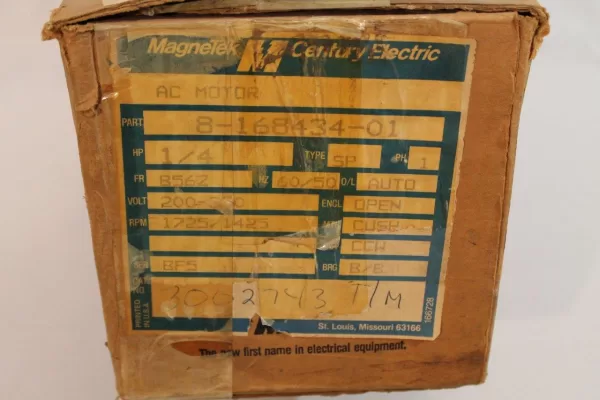 Magnetek Century Electric
AC MOTOR
PART. 8-168434-01
HP 1/4 TYPE SP PH. 1
FR B56Z HZ 60/50 O/L AUTO
VOLT ENCL OPEN
RPM 1725/1425
CCW
BF5 BRG B/B
3002743 T/M
PRINTED IN U.S.A.
166728
St. Louis, Missouri 63166
The new first name in electrical equipment.